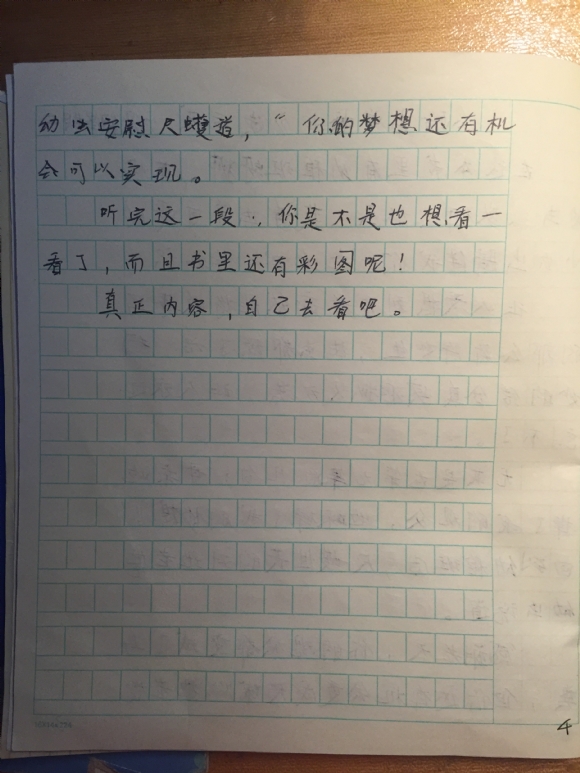 幼虫安慰尺蠖道，“你的梦想还有机
会可以实现。
听完这一段，你是不是也想看一
看了，而且书里还有彩图呢！
真正内容，自己去看吧。
4